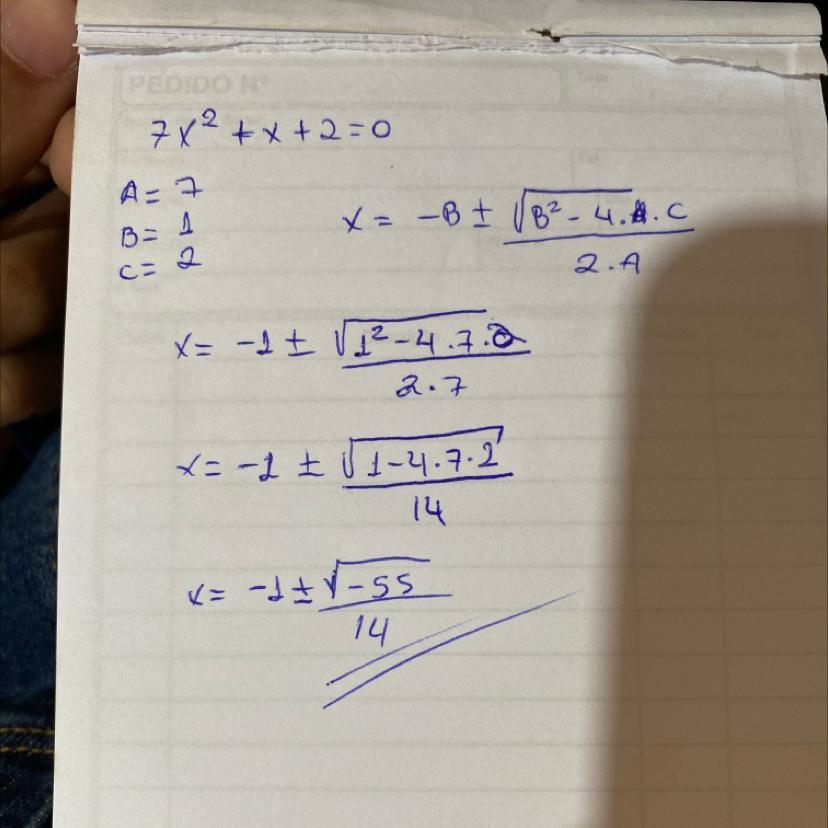 PEDIDO Nº
7x² + x + 2 = 0
A = 7
B = 1
C = 2
x = -B ± √B² - 4.A.C
2.A
x = -1 ± √1² - 4.7.2
2.7
x = -1 ± √1 - 4.7.2
14
x = -1 ± √-55
14